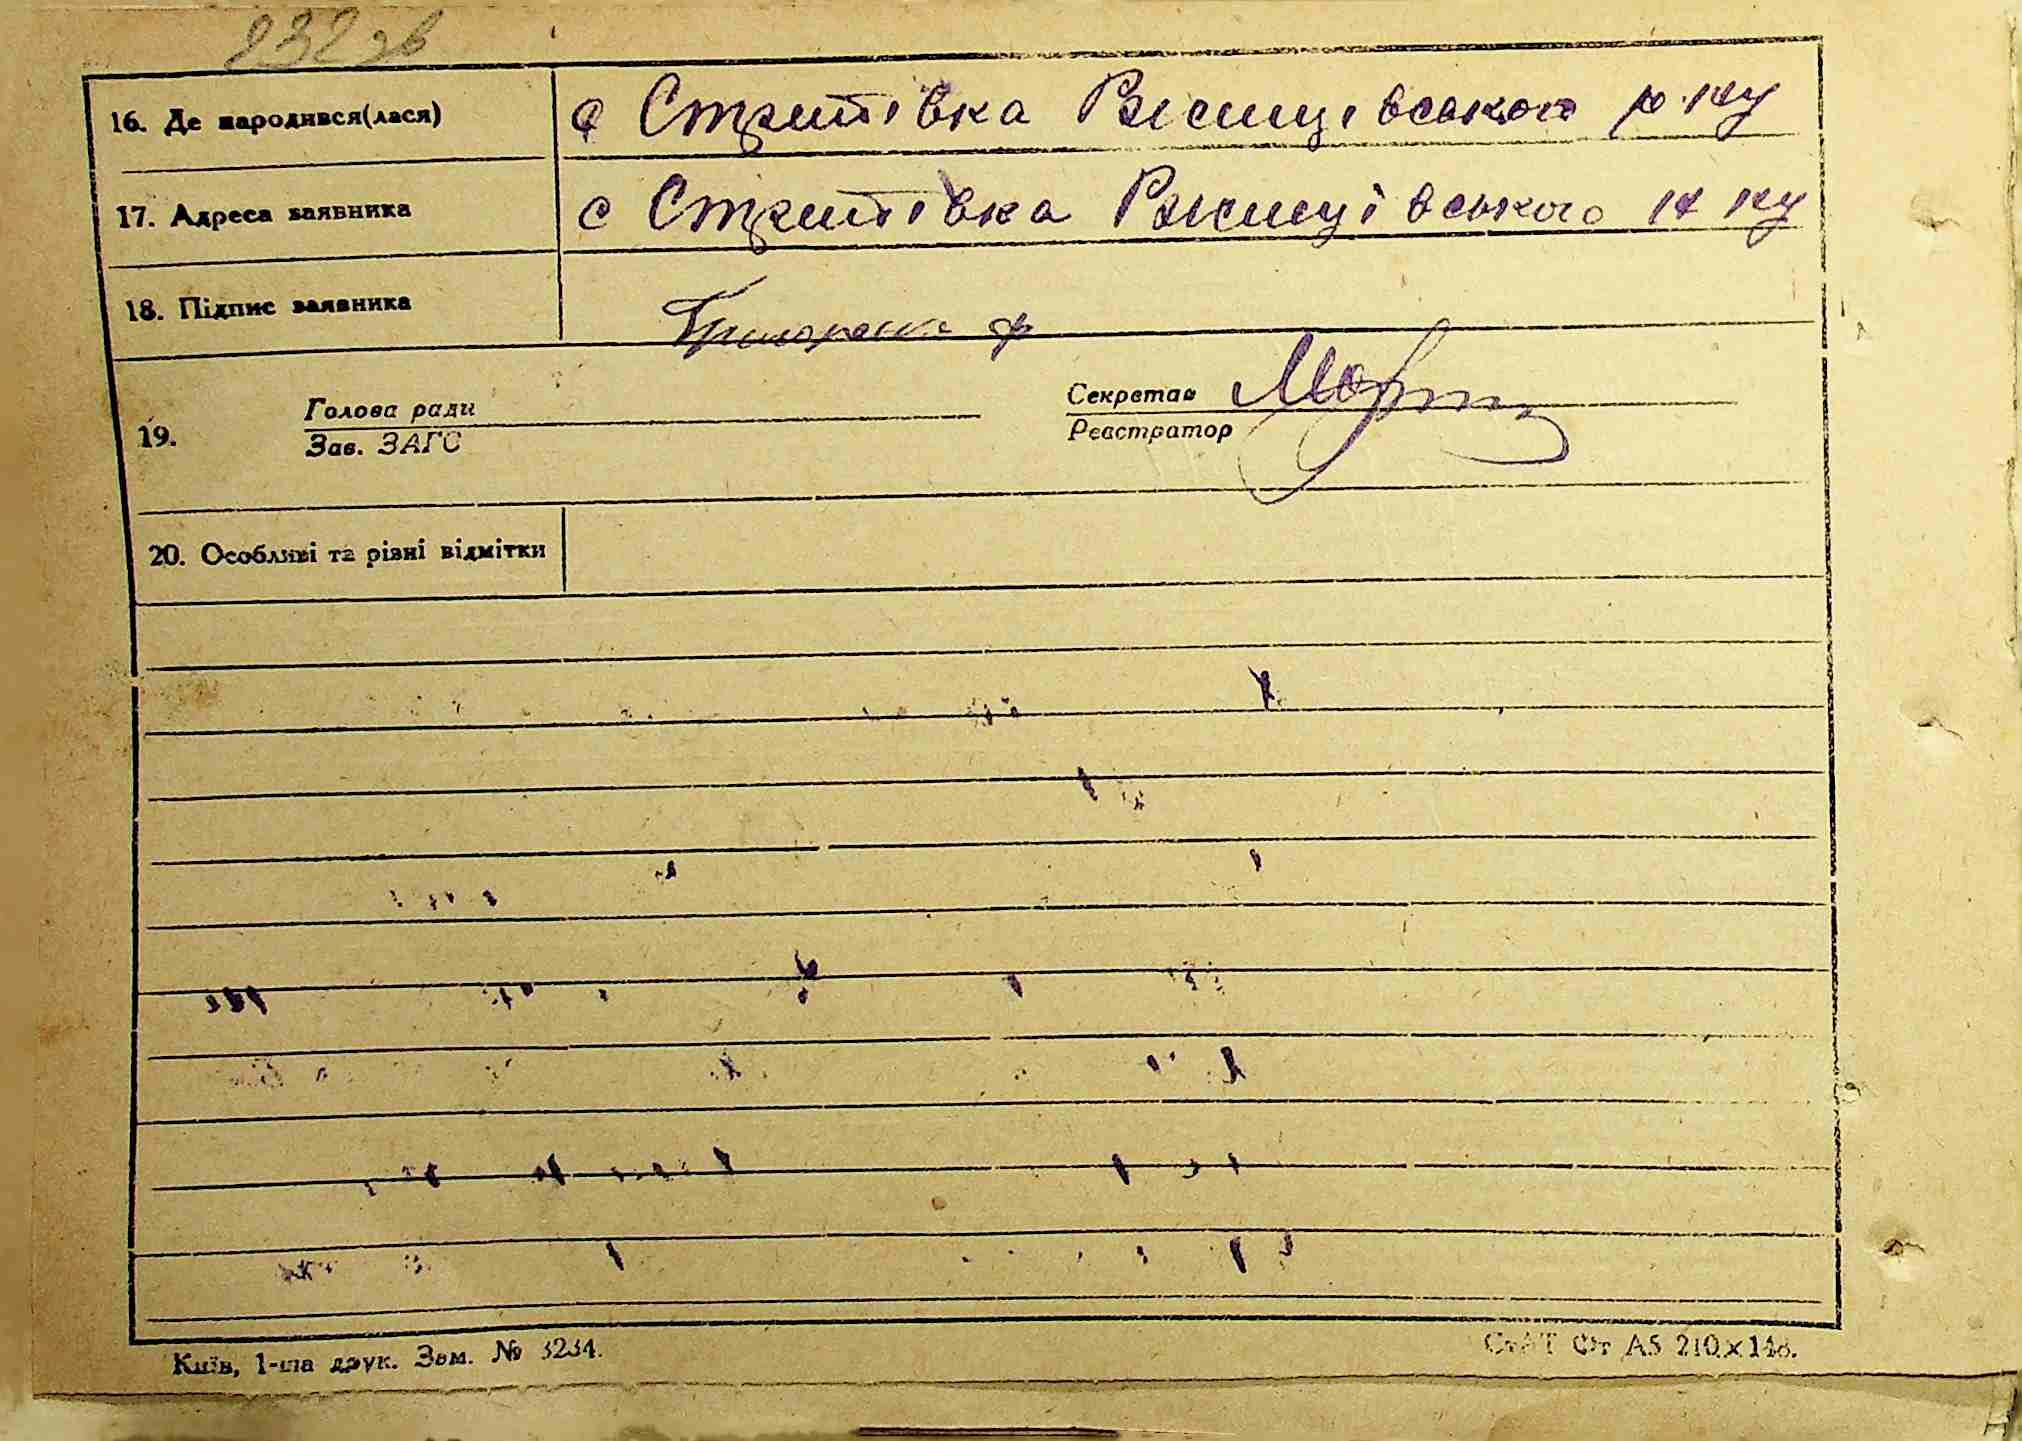 232 зв
16. Де народився(лася) с Стритівка Ржищівського р-ну
17. Адреса заявника с Стритівка Ржищівського р ну
18. Підпис заявника
19. Голова ради Секретар
Зав. ЗАГС Реєстратор
20. Особливі та різні відмітки
Київ, 1-ша друк. Зам. № 3234. СтАТ Фт А5 210×148.